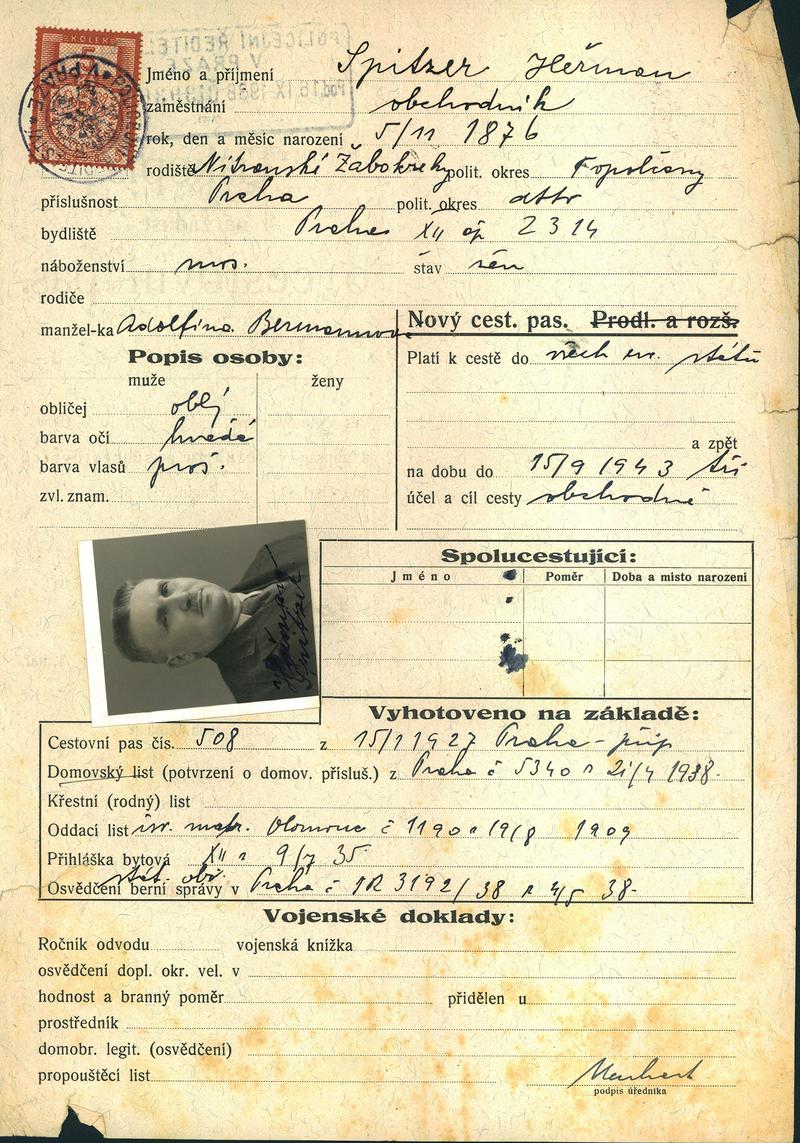 KOLEK
5
POLICEJNÍ ŘEDITEL
V PRAZE
16. IX. 1938
Jméno a příjmení Spitzer Heřman
zaměstnání obchodník
rok, den a měsíc narození 5/11 1876
rodiště Nitranské Žabokreky polit. okres Topolčany
příslušnost Praha polit. okres dtto
bydliště Praha XII čp 2314
náboženství mos. stav žen
rodiče
manžel-ka Adolfina Bermannová
Nový cest. pas. Prodl. a rozš.
Popis osoby:
muže ženy
Platí k cestě do všech ev. států
obličej oblý
barva očí hnědé
barva vlasů proš.
zvl. znam.
a zpět
na dobu do 15/9 1943 tří
účel a cíl cesty obchodní
Heřman Spitzer
Spolucestující:
Jméno Poměr Doba a misto narození
Vyhotoveno na základě:
Cestovní pas čís. 508 z 15/1 1927 Praha-
Domovský list (potvrzení o domov. přísluš.) z Praha č 5340 21/4 1938.
Křestní (rodný) list
Oddací list isr. matr. Olomouc č 1190 19/8 1909
Přihláška bytová XII 9/7 35
stát. obč.
Osvědčení berní správy v Praha č 1R 3192/38 4/5 38-
Vojenské doklady:
Ročník odvodu vojenská knížka
osvědčení dopl. okr. vel. v
hodnost a branný poměr přidělen u
prostředník
domobr. legit. (osvědčení)
propouštěcí list
podpis úředníka